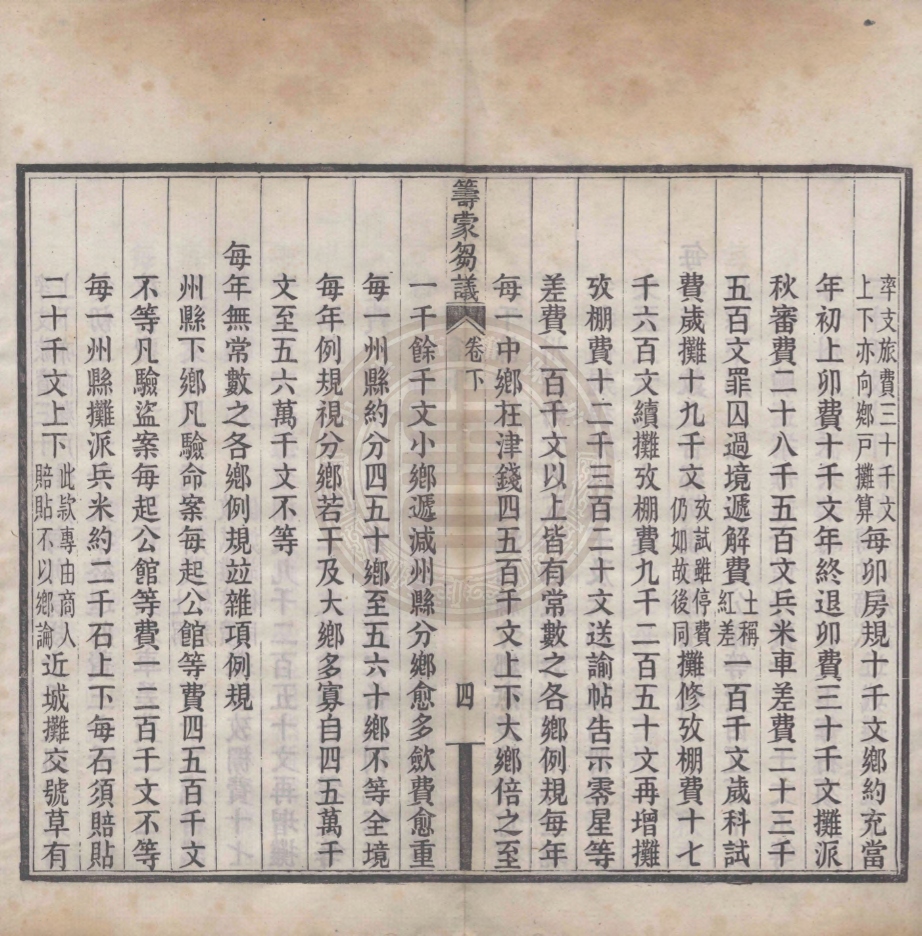 率支旅費三十千文上下亦向鄉戶攤算每卯房規十千文鄉約充當
年初上卯費十千文年終退卯費三十千文攤派
秋審費二十八千五百文兵米車差費二十三千
五百文罪囚過境遞解費土稱紅差一百千文歲科試
費歲攤十九千文攷試雖停費仍如故後同攤修攷棚費十七
千六百文續攤攷棚費九千二百五十文再增攤
攷棚費十二千三百二十文送諭帖告示零星等
差費一百千文以上皆有常數之各鄉例規每年
每一中鄉在津錢四五百千文上下大鄉倍之至
籌蒙芻議 卷下 四
一千餘千文小鄉遞減州縣分鄉愈多歛費愈重
每一州縣約分四五十鄉至五六十鄉不等全境
每年例規視分鄉若干及大鄉多寡自四五萬千
文至五六萬千文不等
每年無常數之各鄉例規竝雜項例規
州縣下鄉凡驗命案每起公館等費四五百千文
不等凡驗盜案每起公館等費一二百千文不等
每一州縣攤派兵米約二千石上下每石須賠貼
二十千文上下此款專由商人賠貼不以鄉論近城攤交號草有